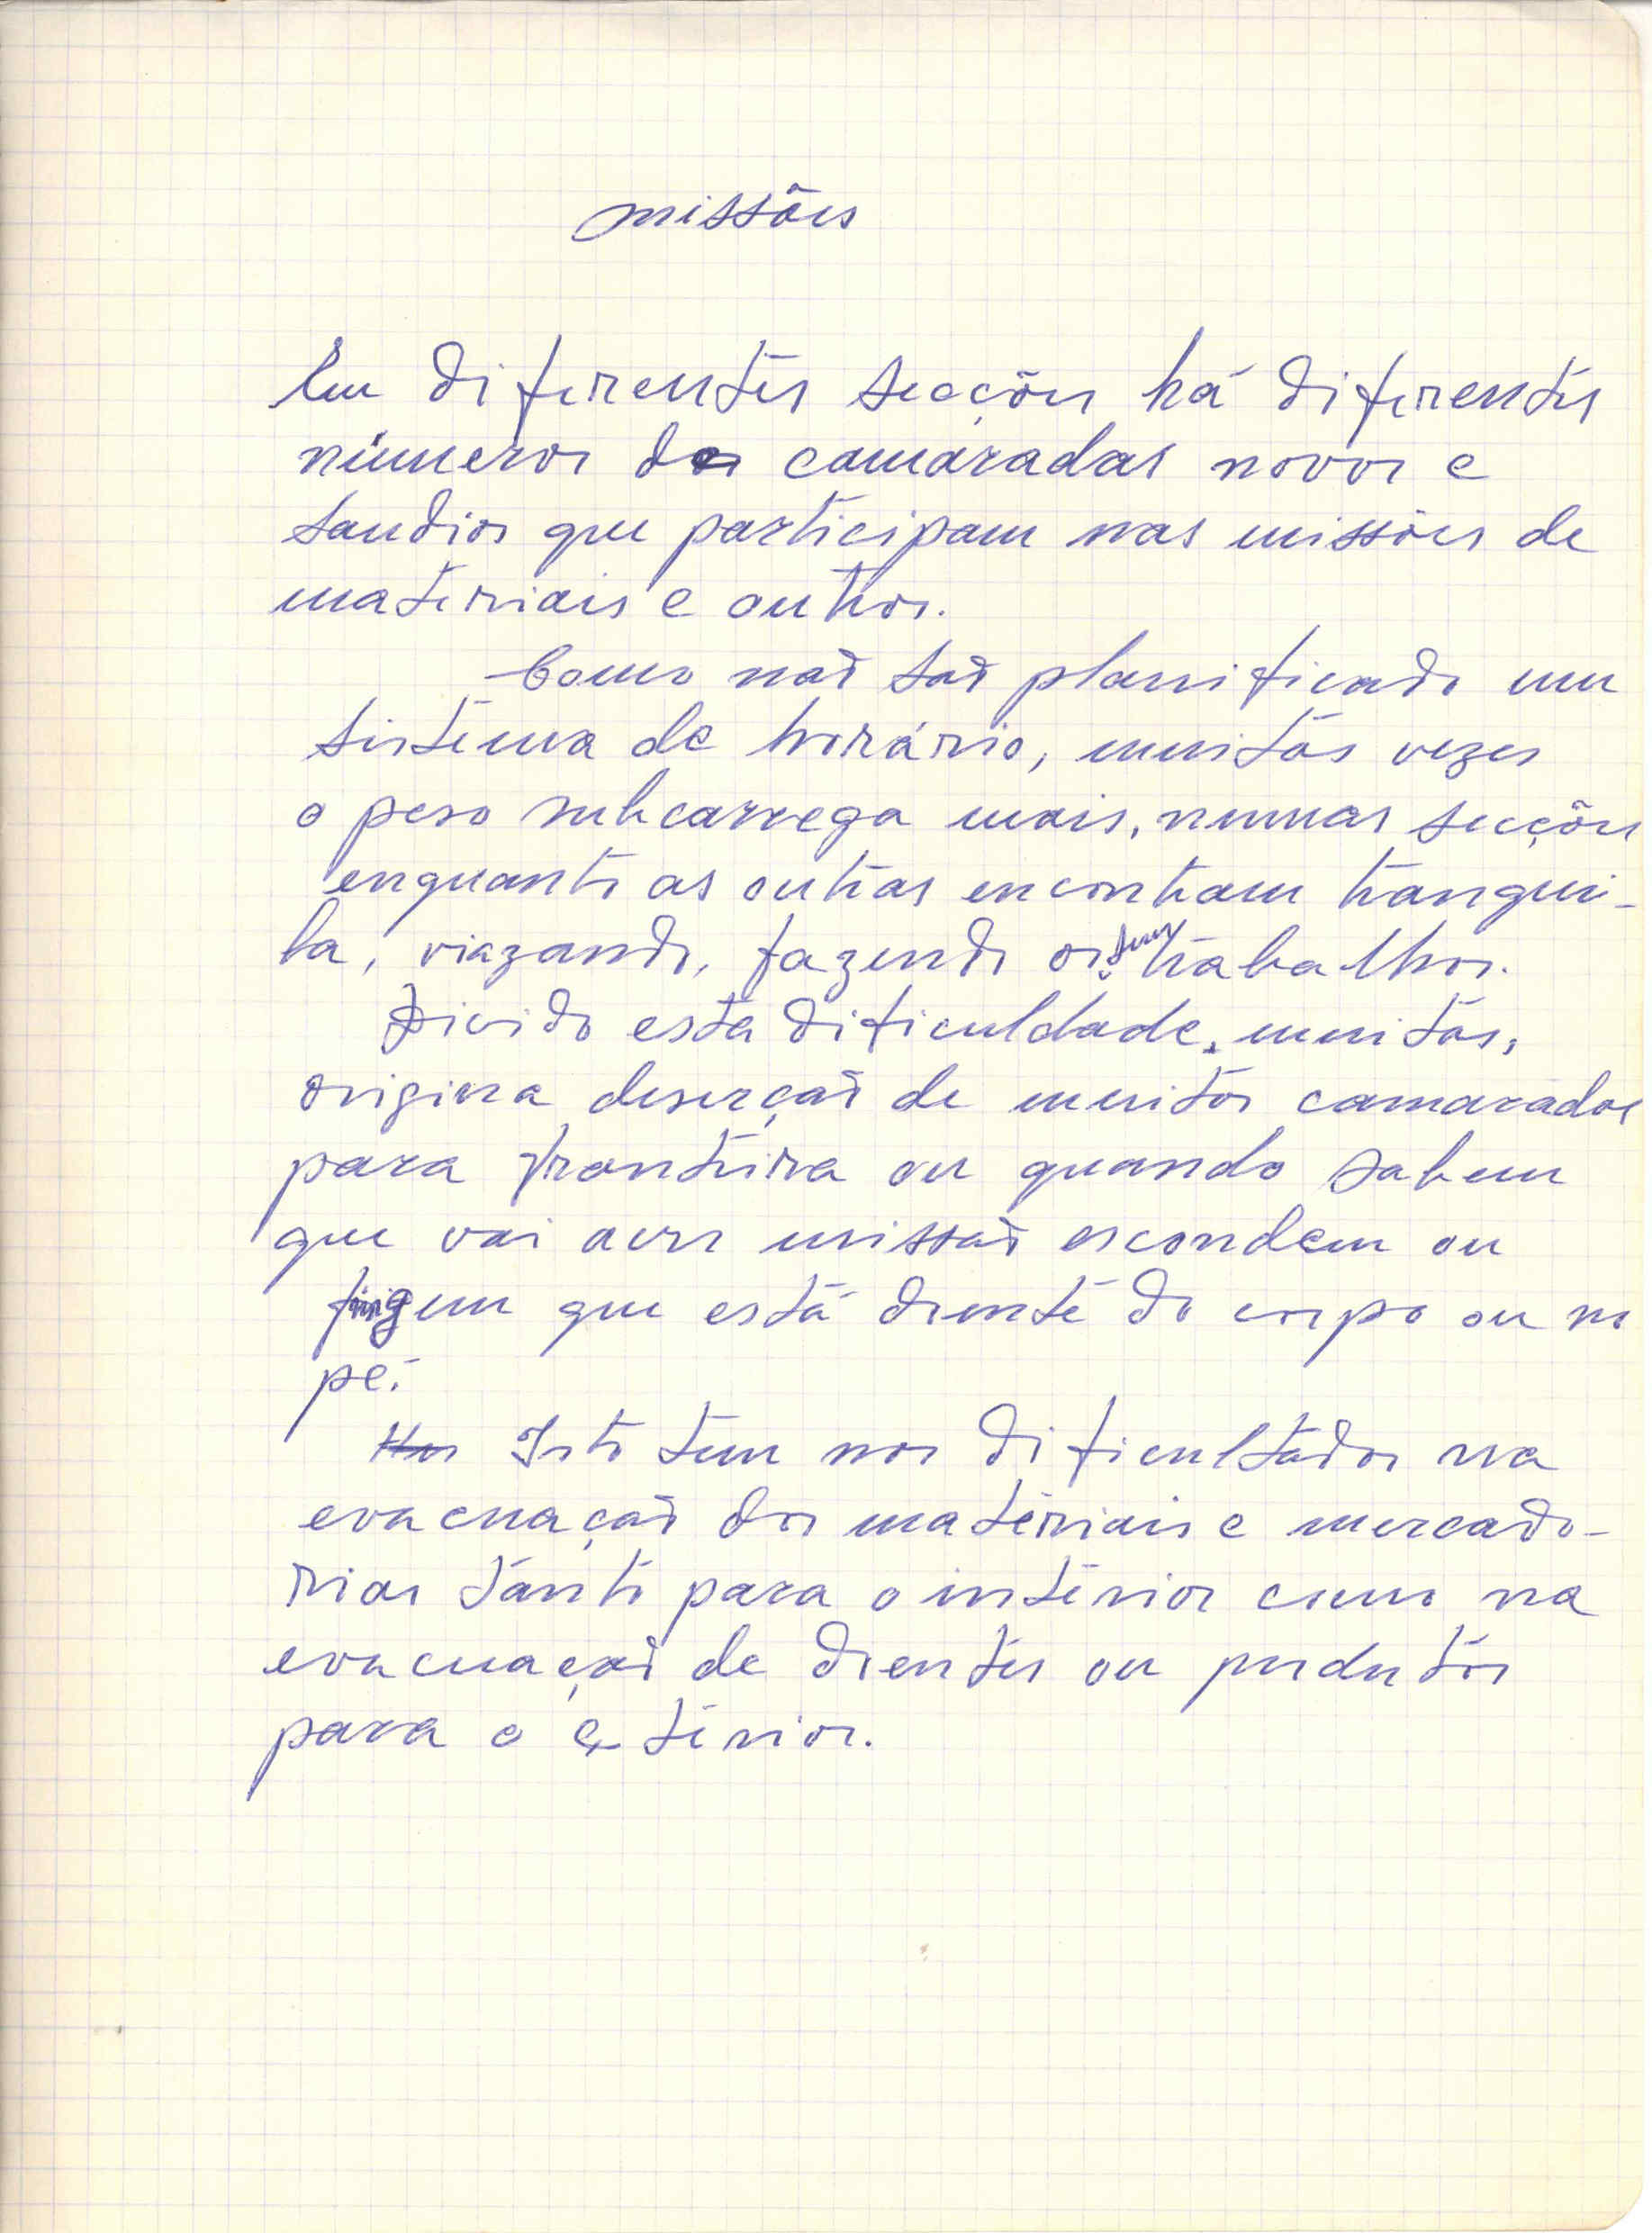 missões
Em diferentes secções há diferentes
números de camaradas novos e
saudios que participam nas missões de
materiais e outros.
Como não são planificado um
sistema de horário, muitas vezes
o peso subcarrega mais, numas secções
enquanto as outras encontram tranqui-
la, viazando, fazendo os seus trabalhos.
Divido esta dificuldade, muitas,
origina deserção de muitos camaradas
para fronteira ou quando sabem
que vai aver missão escondem ou
fingem que está doente do corpo ou no
pé.
Isto tem nos dificultados na
evacuação dos materiais e mercado-
rias tanto para o interior como na
evacuação de doentes ou produtos
para o exterior.